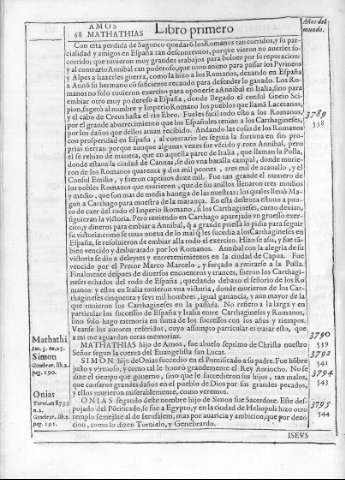 AMOS
68 MATHATHIAS Libro primero
Años del mundo.
Con esta perdida de Sagunto quedarõ los Romanos tan corridos, y su parcialidad
y amigos en España tan descontentos, porque vieron no auerles socorrido,
que tuuieron muy grandes trabajos para boluer por su reputacion:
y al contrario Anibal tan poderoso, que tuuo animo para passar los Pyrineos
y Alpes a hazerles guerra, como la hizo a los Romanos, dexando en España
a
hermano cõ suficiente recaudo para defender lo ganado. Los Romanos
no solo tuuieron exercitos para oponerse a Anibal en Italia, sino para
embiar otro muy poderoso a España, donde llegado el consul Gneio Scipion,
sugetò al nombre y Imperio Romano los pueblos que llamã Lacetanos,
y el cabo de Creus hasta el rio Ebro. Fueles facil todo esto a los Romanos,
por el grande aborrecimiento que los Españoles tenian a los Carthagineses,
por los daños que dellos auian recibido. Andando las cosas de los Romanos
con prosperidad en España, al contrario les seguia la fortuna en sus propias
tierras: porque aunque algunas vezes fue vẽcido y roto Annibal, pero
el se rehizo de manera, que en aquella parte de Italia, que llaman la Pulla,
donde estaua la ciudad de Cannas, se dio vna batalla campal, donde murieron
de los Romanos quarenta y dos mil peones, tres mil de acauallo, y el
Consul Emilio, y fueron captiuos doze mil. Fue tan grande el numero de
los nobles Romanos que murieron, que de sus anillos llenaron tres modios
y medio, que son mas de media hanega de las nuestras: los quales lleuò Magon
a Carthago para muestra de la matança. En esta destruta estuuo a punto
de caer del todo el Imperio Romano, si los Carthagineses, como deuian,
siguieran la vitoria. Pero metiendo en Carthago aparejado vn gruesso exercito,
y dineros para embiar a Annibal, q̃ a grande priessa lo pidia para seguir
la vitoria; como se tratara de lo mal q̃ les sucedia a los Carthagineses en
España, se resoluieron de embiar alla todo el exercito. Hizose assi, y fue tãbien
vencido y desbaratado por los Romanos. Annibal con la alegria de su
vitoria se dio a deleytes y entretenimientos en la ciudad de Capua. Fue
vencido por el Pretor Marco Marcelo, y forçado a retirarse a la Pulla.
Finalmente despues de diuersos encuentros y trances, fueron los Carthagineses
echados del todo de España, quedando debaxo el señorio de los Romanos:
y ellos en Italia tuuieron vna vitoria, donde murieron de los Carthagineses
cinquenta y seys mil hombres, igual ganancia, y aun mayor de la
que tuuieron los Carthagineses en la passada. No refiero a la larga y en
particular los sucessos de España y Italia entre Carthagineses y Romanos,
sino solo hago memoria en suma de los sucessos con los años y tiempos.
Veanse los autores referidos, cuyo assumpto particular es tratar esto, que
a mi no me aguardan otras memorias.
MATHATHIAS hijo de Amos, fue abuelo septimo de Christo nuestro
Señor segun la cuenta del Euangelista san Lucas.
SIMON IV. hijo de Onias sucedio en el Pontificado a su padre. Fue hõbre
justo y virtuoso, y como tal le honrò grandemente el Rey Antiocho. No se
dize el tiempo que gouerno, sino que le sucedieron sus hijos, tan malos,
que causaron grandes daños en el pueblo de Dios por sus grandes pecados,
y ellos murieron miserablemente, como veremos.
ONIAS segundo deste nombre hijo de Simon fue Sacerdote. Este despojado
del Põtificado, se fue a Egypto, y en la ciudad de Heliopolis hizo otro
templo semejante al de Ierusalem, mas por auaricia y ambicion, que por deuocion,
como lo dizen Torniulo, y Genebrardo.
ISEVS
3789
338
Mathathi
Luc. 3. nu. 25.
Simon
Genebrar. lib. 2.
pag. 190.
Onias
Genebrar. lib. 2.
pag. 191.
3790
339
3792
341
3794
343
3795
344